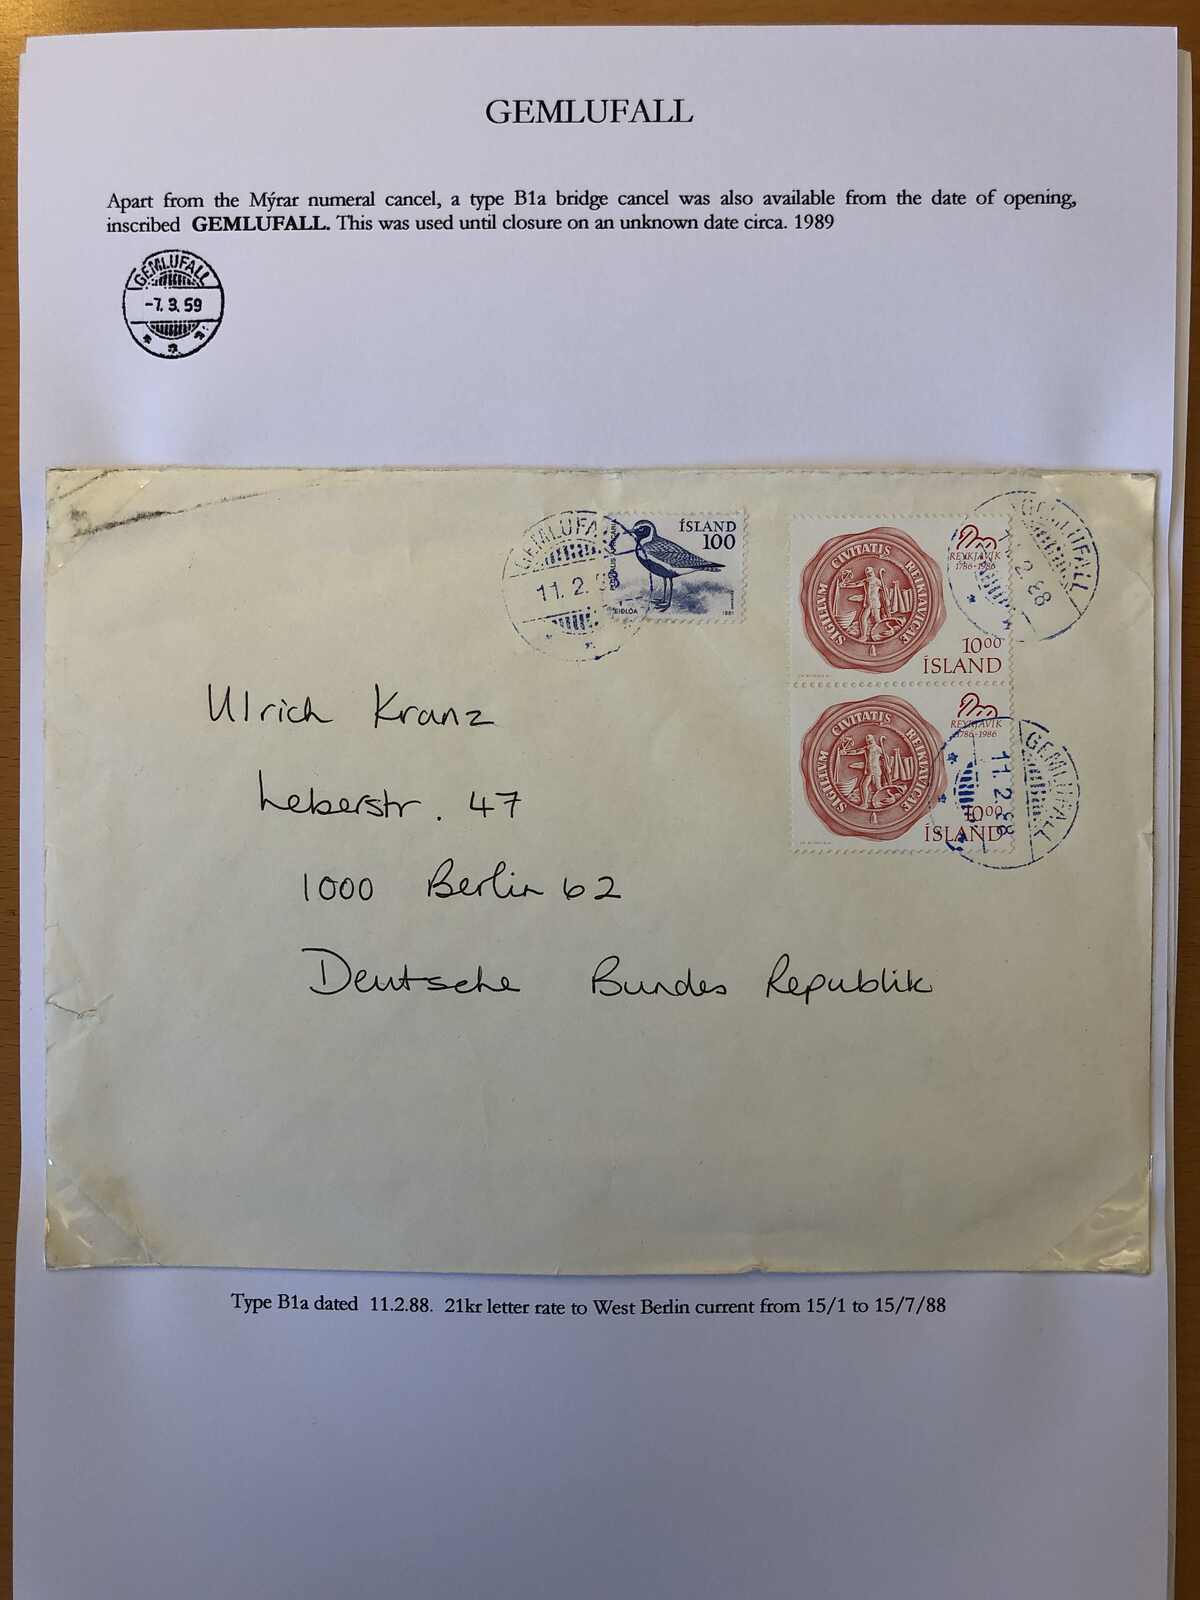 GEMLUFALL
Apart from the Mýrar numeral cancel, a type B1a bridge cancel was also available from the date of opening,
inscribed GEMLUFALL. This was used until closure on an unknown date circa. 1989
GEMLUFALL
-7.3.59
GEMLUFA
11.2.88
ÍSLAND
100
1981
GEMLUFALL
2 88
SIGILLVM CIVITATIS REIKIAVICAE
REYKJAVÍK
1786-1986
10⁰⁰
ÍSLAND
SIGILLVM CIVITATIS REIKIAVICAE
REYKJAVÍK
1786-1986
10⁰⁰
ÍSLAND
GEMLUFALL
11.2.88
Ulrich Kranz
Leberstr. 47
1000 Berlin 62
Deutsche Bundes Republik
Type B1a dated 11.2.88. 21kr letter rate to West Berlin current from 15/1 to 15/7/88